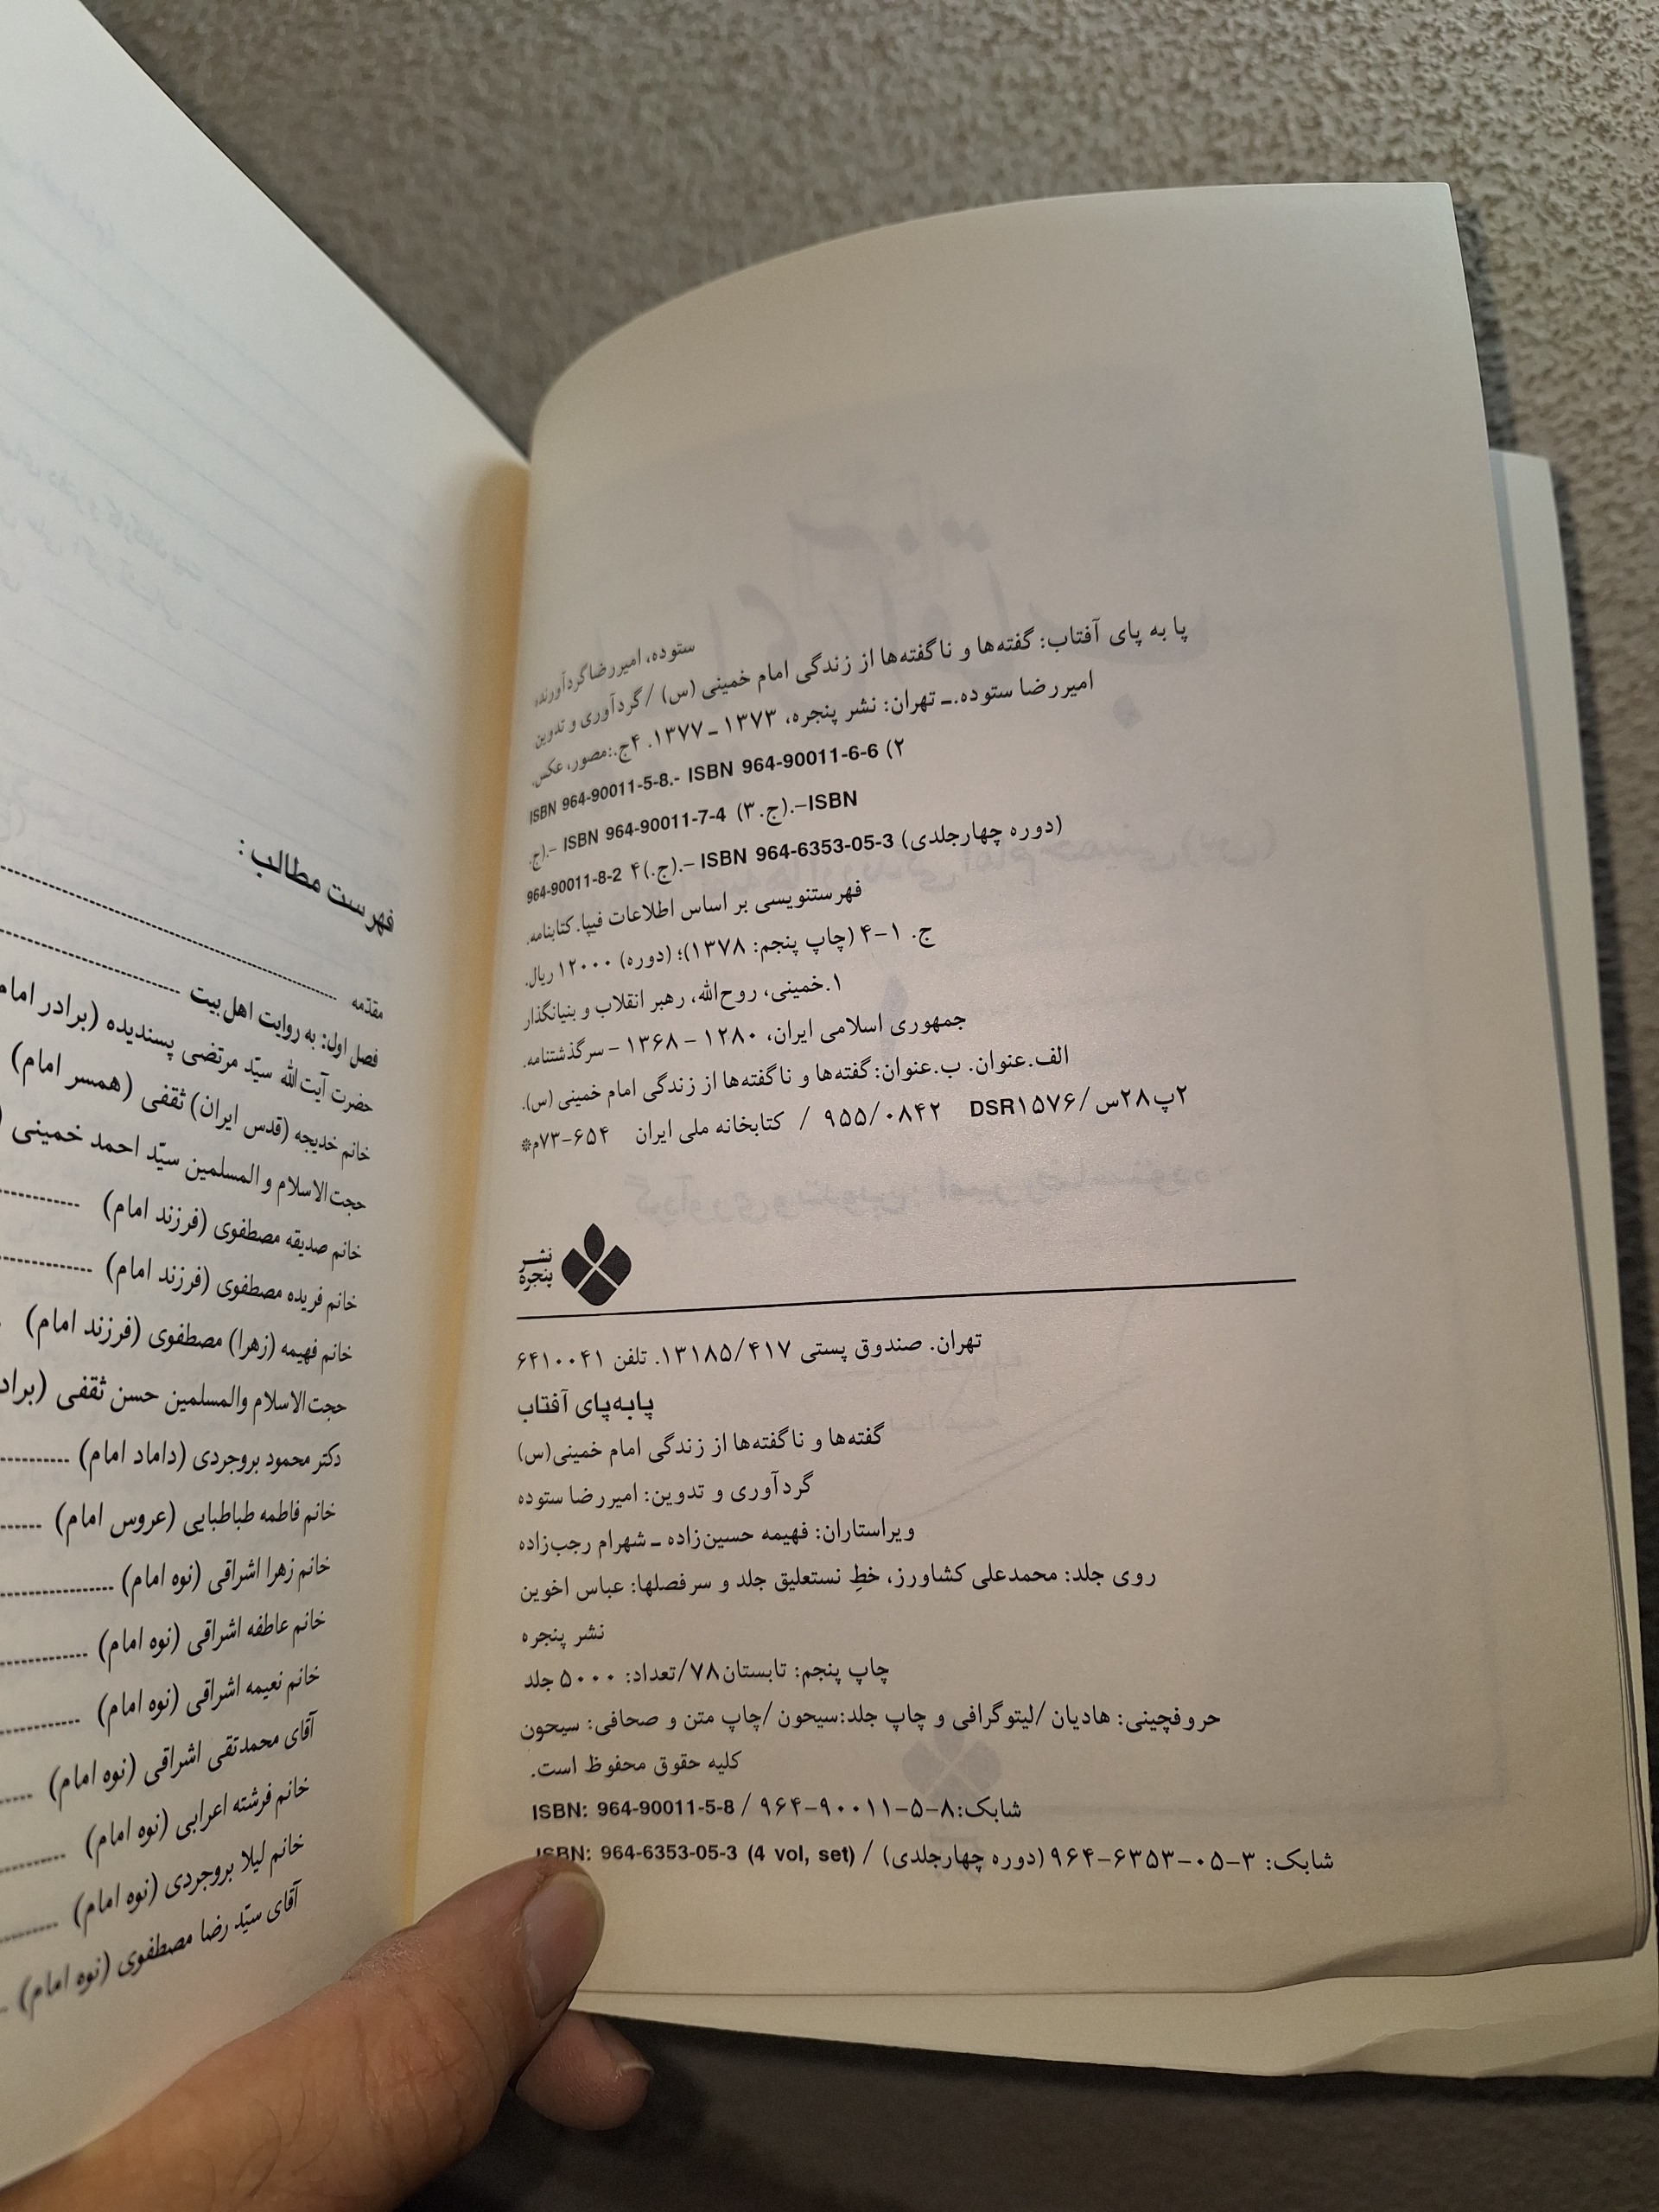 ستوده، امیررضا گردآورنده
پا به پای آفتاب: گفته‌ها و ناگفته‌ها از زندگی امام خمینی (س) /گردآوری و تدوین
امیررضا ستوده.ـ تهران: نشر پنجره، ۱۳۷۳ ـ ۱۳۷۷. ۴ج.:مصور، عکس.
ISBN 964-90011-5-8.- ISBN 964-90011-6-6 (۲
ج.).– ISBN 964-90011-7-4 (ج. ۳).–ISBN
964-90011-8-2 (ج.۴).– ISBN 964-6353-05-3 (دوره چهارجلدی)
فهرستنویسی بر اساس اطلاعات فیپا. کتابنامه.
ج. ۱–۴ (چاپ پنجم: ۱۳۷۸)؛ (دوره) ۱۲۰۰۰ ریال.
۱.خمینی، روح‌الله، رهبر انقلاب و بنیانگذار
جمهوری اسلامی ایران، ۱۲۸۰ – ۱۳۶۸ – سرگذشتنامه.
الف.عنوان. ب.عنوان: گفته‌ها و ناگفته‌ها از زندگی امام خمینی (س).
۲پ۲۸س/DSR۱۵۷۶ ۹۵۵/۰۸۴۲ / کتابخانه ملی ایران ۶۵۴–۷۳م*
نشر
پنجره
تهران. صندوق پستی ۱۳۱۸۵/۴۱۷. تلفن ۶۴۱۰۰۴۱
پابه‌پای آفتاب
گفته‌ها و ناگفته‌ها از زندگی امام خمینی(س)
گردآوری و تدوین: امیررضا ستوده
ویراستاران: فهیمه حسین‌زاده ـ شهرام رجب‌زاده
روی جلد: محمدعلی کشاورز، خطِ نستعلیق جلد و سرفصلها: عباس اخوین
نشر پنجره
چاپ پنجم: تابستان۷۸/تعداد: ۵۰۰۰ جلد
حروفچینی: هادیان /لیتوگرافی و چاپ جلد:سیحون /چاپ متن و صحافی: سیحون
کلیه حقوق محفوظ است.
شابک:۸–۵–۹۰۰۱۱–۹۶۴ / ISBN: 964-90011-5-8
شابک: ۳–۰۵–۶۳۵۳–۹۶۴(دوره چهارجلدی) / ISBN: 964-6353-05-3 (4 vol, set)
فهرست مطالب :
مقدّمه
فصل اول: به روایت اهل‌بیت
حضرت آیت‌الله سیّد مرتضی پسندیده (برادر امام
خانم خدیجه (قدس ایران) ثقفی (همسر امام)
حجت‌الاسلام و المسلمین سیّد احمد خمینی (
خانم صدیقه مصطفوی (فرزند امام)
خانم فریده مصطفوی (فرزند امام)
خانم فهیمه (زهرا) مصطفوی (فرزند امام)
حجت‌الاسلام والمسلمین حسن ثقفی (براد
دکتر محمود بروجردی (داماد امام)
خانم فاطمه طباطبایی (عروس امام)
خانم زهرا اشراقی (نوه امام)
خانم عاطفه اشراقی (نوه امام)
خانم نعیمه اشراقی (نوه امام)
آقای محمدتقی اشراقی (نوه امام)
خانم فرشته اعرابی (نوه امام)
خانم لیلا بروجردی (نوه امام)
آقای سیّد رضا مصطفوی (نوه امام)